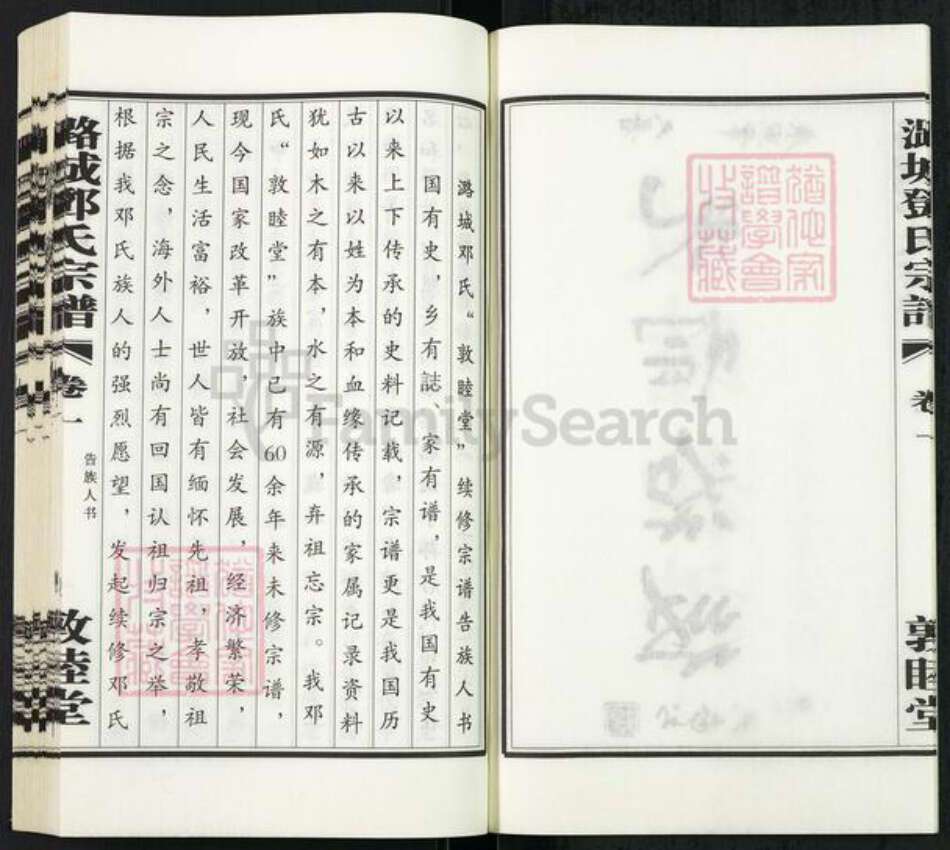 潞城邓氏“敦睦堂”续修宗谱告族人书
国有史，乡有誌、家有谱，是我国有史
以来上下传承的史料记载，宗谱更是我国历
古以来以姓为本和血缘传承的家属记录资料
犹如木之有本，水之有源，弃祖忘宗。我邓
氏“敦睦堂”族中已有60余年来未修宗谱，
现今国家改革开放，社会发展，经济繁荣，
人民生活富裕，世人皆有缅怀先祖，孝敬祖
宗之念，海外人士尚有回国认祖归宗之举，
根据我邓氏族人的强烈愿望，发起续修邓氏
潞城邓氏宗谱 卷一 告族人书 敦睦堂
潞城鄧氏宗譜 卷一 敦睦堂
FamilySearch